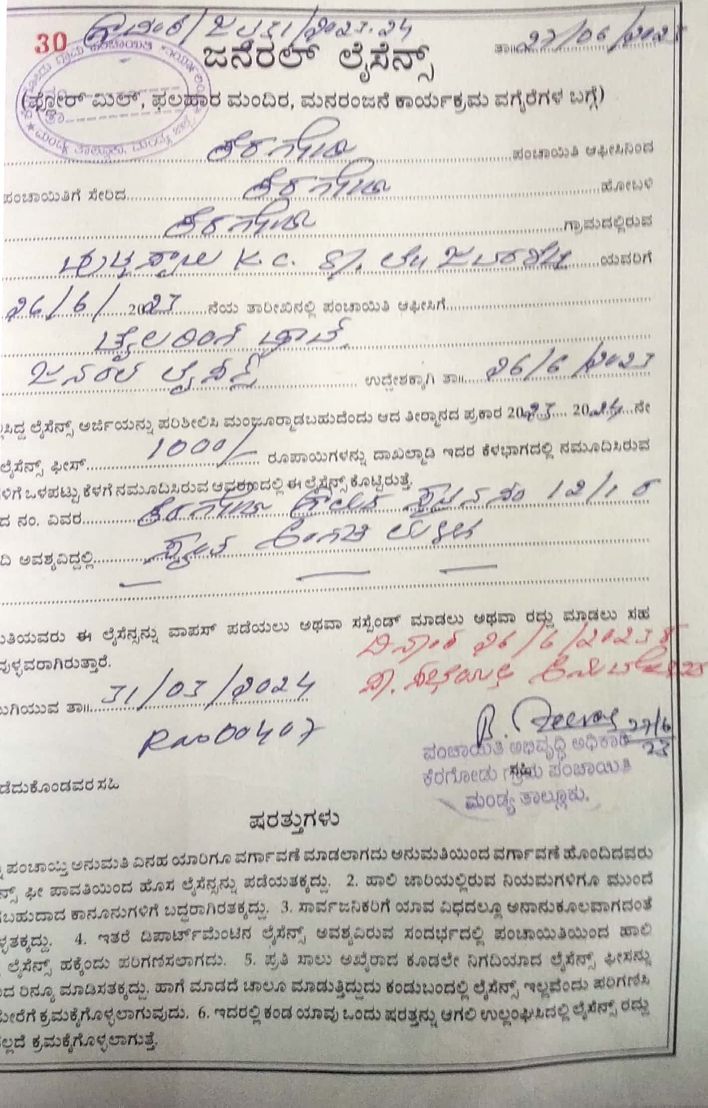 30 /2023-24
ಜನರಲ್ ಲೈಸೆನ್ಸ್ ತಾ॥ 27/06/2023
(ಫ್ಲೋರ್ ಮಿಲ್, ಫಲಹಾರ ಮಂದಿರ, ಮನರಂಜನೆ ಕಾರ್ಯಕ್ರಮ ವಗೈರೆಗಳ ಬಗ್ಗೆ)
ಕೆರಗೋಡು ಪಂಚಾಯಿತಿ ಆಫೀಸಿನಿಂದ
ಪಂಚಾಯಿತಿಗೆ ಸೇರಿದ ಕೆರಗೋಡು ಹೋಬಳಿ
ಕೆರಗೋಡು ಗ್ರಾಮದಲ್ಲಿರುವ
K.C. ಯವರಿಗೆ
26/6/2023 ನೆಯ ತಾರೀಖಿನಲ್ಲಿ ಪಂಚಾಯಿತಿ ಆಫೀಸಿಗೆ
ಟೈಲರಿಂಗ್ ಶಾಪ್
ಜನರಲ್ ಲೈಸೆನ್ಸ್ ಉದ್ದೇಶಕ್ಕಾಗಿ ತಾ॥ 26/6/2023
ಸಿದ್ದ ಲೈಸೆನ್ಸ್ ಅರ್ಜಿಯನ್ನು ಪರಿಶೀಲಿಸಿ ಮಂಜೂರ್ಮಾಡಬಹುದೆಂದು ಆದ ತೀರ್ಮಾನದ ಪ್ರಕಾರ 2023 2024 ನೇ
ಲೈಸೆನ್ಸ್ ಫೀಸ್ 1000/- ರೂಪಾಯಿಗಳನ್ನು ದಾಖಲ್ಮಾಡಿ ಇದರ ಕೆಳಭಾಗದಲ್ಲಿ ನಮೂದಿಸಿರುವ
ಳಿಗೆ ಒಳಪಟ್ಟು ಕೆಳಗೆ ನಮೂದಿಸಿರುವ ಆವರಣದಲ್ಲಿ ಈ ಲೈಸೆನ್ಸ್ ಕೊಟ್ಟಿರುತ್ತೆ.
ದ ನಂ. ವಿವರ ಕೆರಗೋಡು ಗ್ರಾಮದ ಸ್ವತ್ತಿನ ನಂ 12/1
ದಿ ಅವಶ್ಯವಿದ್ದಲ್ಲಿ ಅಂಗಡಿ ಮಳಿಗೆ
ತಿಯವರು ಈ ಲೈಸೆನ್ಸನ್ನು ವಾಪಸ್ ಪಡೆಯಲು ಅಥವಾ ಸಸ್ಪೆಂಡ್ ಮಾಡಲು ಅಥವಾ ರದ್ದು ಮಾಡಲು ಸಹ
ವುಳ್ಳವರಾಗಿರುತ್ತಾರೆ. ದಿನಾಂಕ 26/6/2023ರ
ಮುಗಿಯುವ ತಾ॥ 31/03/2024
Rno00407 27/6
23
ಪಂಚಾಯಿತಿ ಅಭಿವೃದ್ಧಿ ಅಧಿಕಾರಿ
ಸಹಿ
ಕೆರಗೋಡು ಗ್ರಾಮ ಪಂಚಾಯಿತಿ
ಡೆದುಕೊಂಡವರ ಸಹಿ ಮಂಡ್ಯ ತಾಲ್ಲೂಕು.
ಷರತ್ತುಗಳು
ಪಂಚಾಯ್ತಿ ಅನುಮತಿ ವಿನಹ ಯಾರಿಗೂ ವರ್ಗಾವಣೆ ಮಾಡಲಾಗದು ಅನುಮತಿಯಿಂದ ವರ್ಗಾವಣೆ ಹೊಂದಿದವರು
ನ್ಸ್ ಫೀ ಪಾವತಿಯಿಂದ ಹೊಸ ಲೈಸೆನ್ಸನ್ನು ಪಡೆಯತಕ್ಕದ್ದು. 2. ಹಾಲಿ ಜಾರಿಯಲ್ಲಿರುವ ನಿಯಮಗಳಿಗೂ ಮುಂದೆ
ಬಹುದಾದ ಕಾನೂನುಗಳಿಗೆ ಬದ್ಧರಾಗಿರತಕ್ಕದ್ದು. 3. ಸಾರ್ವಜನಿಕರಿಗೆ ಯಾವ ವಿಧದಲ್ಲೂ ಅನಾನುಕೂಲವಾಗದಂತೆ
ಳ್ಳತಕ್ಕದ್ದು. 4. ಇತರೆ ಡಿಪಾರ್ಟ್‌ಮೆಂಟಿನ ಲೈಸೆನ್ಸ್ ಅವಶ್ಯವಿರುವ ಸಂದರ್ಭದಲ್ಲಿ ಪಂಚಾಯಿತಿಯಿಂದ ಹಾಲಿ
ಲೈಸೆನ್ಸ್ ಹಕ್ಕೆಂದು ಪರಿಗಣಿಸಲಾಗದು. 5. ಪ್ರತಿ ಸಾಲು ಅಖೈರಾದ ಕೂಡಲೇ ನಿಗದಿಯಾದ ಲೈಸೆನ್ಸ್ ಫೀಸನ್ನು
ದ ರಿನ್ಯೂ ಮಾಡಿಸತಕ್ಕದ್ದು. ಹಾಗೆ ಮಾಡದೆ ಚಾಲೂ ಮಾಡುತ್ತಿದ್ದುದು ಕಂಡುಬಂದಲ್ಲಿ ಲೈಸೆನ್ಸ್ ಇಲ್ಲವೆಂದು ಪರಿಗಣಿಸಿ
ಮೇರೆಗೆ ಕ್ರಮಕೈಗೊಳ್ಳಲಾಗುವುದು. 6. ಇದರಲ್ಲಿ ಕಂಡ ಯಾವು ಒಂದು ಷರತ್ತನ್ನು ಆಗಲಿ ಉಲ್ಲಂಘಿಸಿದಲ್ಲಿ ಲೈಸೆನ್ಸ್ ರದ್ದು
ಲ್ಲದೆ ಕ್ರಮಕೈಗೊಳ್ಳಲಾಗುತ್ತೆ.